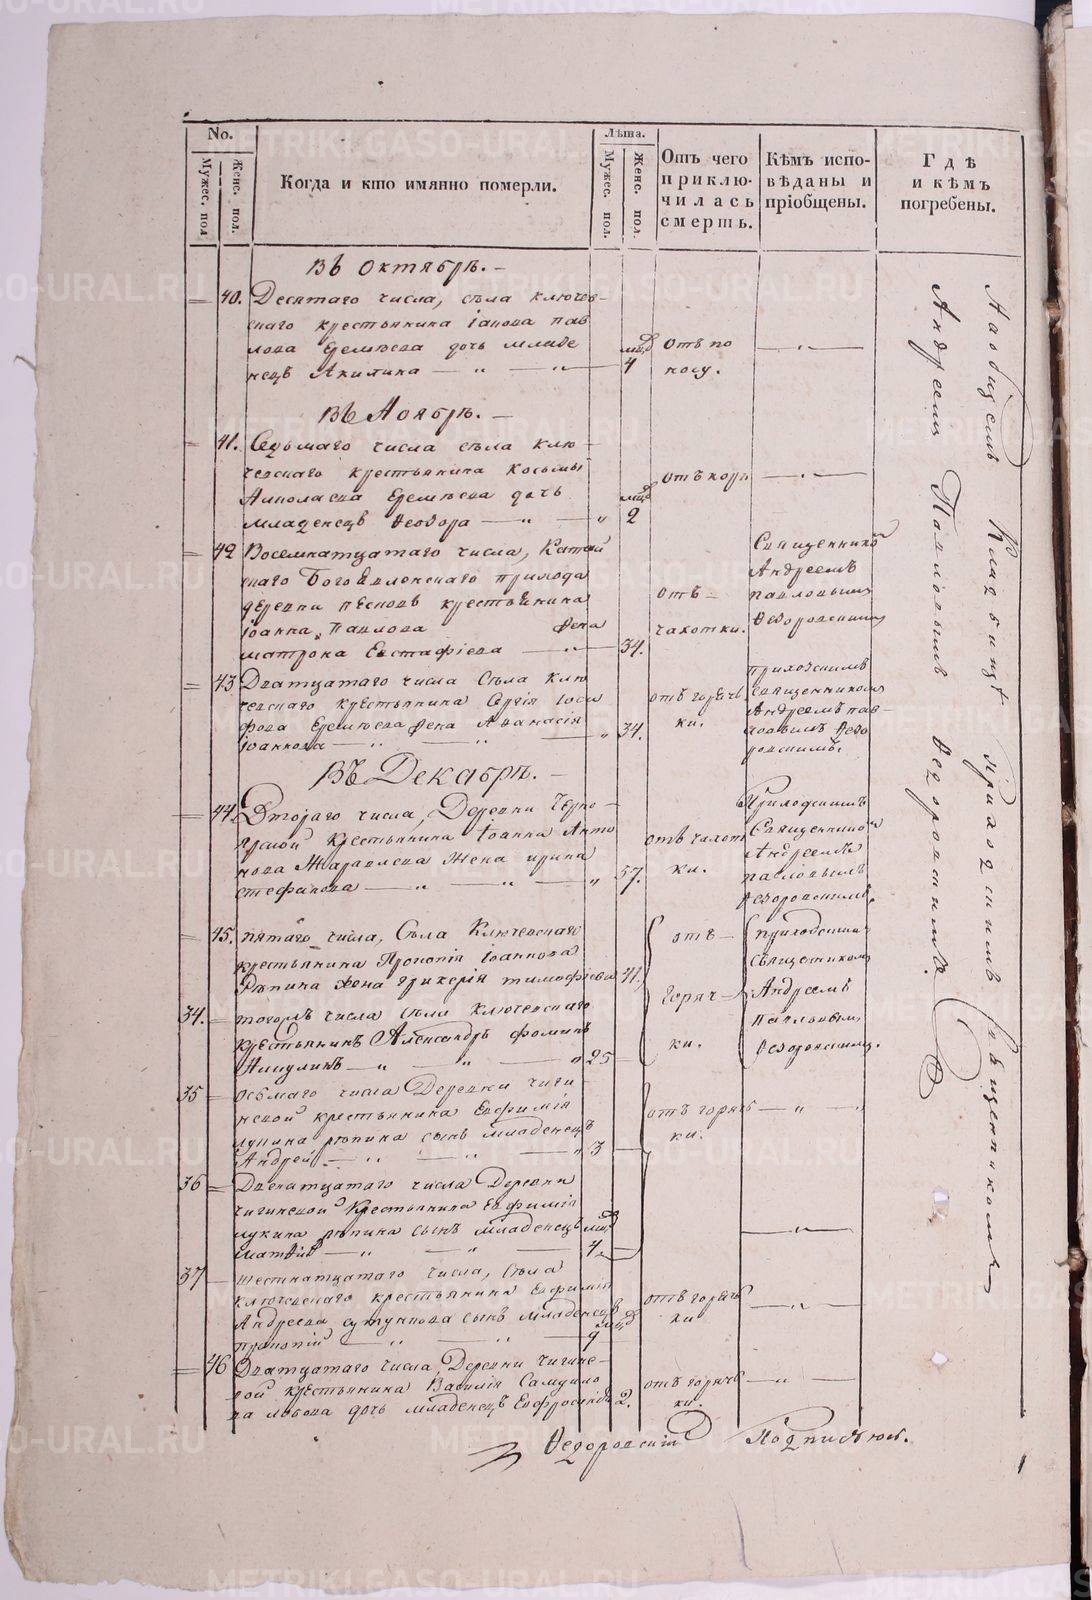 No.
Мужес. пол
Женс. пол.
Когда и кто имянно померли.
Лѣта.
Мужес. пол.
Женс. пол.
Отъ чего приключилась смерть.
Кѣмъ исповѣданы и пріобщены.
Гдѣ и кѣмъ погребены.
Въ Октябрѣ.
40. Десятаго числа, села Ключев-
скаго крестьянина
лова Еремѣева дочь младе
нецъ Акилина
мцд 4
отъ по
носу.
Въ Ноябрѣ.
41. Седьмаго числа села Клю-
чевскаго крестьянина Косьмы
Еремѣева дочь
младенецъ Ѳеодора
мцд 2
отъ кори
42 Восемнатцатаго числа,
скаго Богоявленскаго прихода
деревни крестьянина
Іоанна Павлова жена
матрона Евстафіева
34.
отъ
чахотки.
Священникомъ
Андреемъ
павловымъ
Ѳедоровскимъ
43 Дватцатаго числа Села Клю
чевскаго крестьянина Сергія Іоси
фова Еремѣева жена Аѳанасія
Іоаннова
34.
отъ горяч
ки.
приходскимъ
священникомъ
Андреемъ пав-
ловымъ Ѳедо
ровскимъ.
Въ Декабрѣ.
44. Втораго числа, Деревни Черно-
крестьянина Іоанна Анто
нова Журавлева Жена ирина
стефанова
57.
отъ чахот
ки.
Приходскимъ
Священникомъ
Андреемъ
павловымъ
Ѳедоровскимъ.
45. пятаго числа, Села Ключевскаго
крестьянина Прокопія Іоаннова
Рѣпина жена Гликерія тимофѣева
41.
отъ
горяч
ки.
приходскимъ
священникомъ
Андреемъ
Павловымъ
Ѳедоровскимъ.
34. тогожъ числа села Ключевскаго
крестьянинъ Александръ фоминъ
25
35 осьмаго числа Деревни чиги-
невой крестьянина Евфимія
лукина рѣпина сынъ младенецъ
Андрей
3
отъ горяч
ки.
36 Двенатцатаго числа Деревни
чигиневой крестьянина Евфимія
лукина рѣпина сынъ младенецъ
матвій
мцд 4
37 шестнатцатаго числа, Села
Ключевскаго крестьянина Евфимія
Андреева сутункова сынъ младенецъ
прокопій
мцд 9
отъ горяч
ки
46 Дватцатаго числа, Деревни чигине-
вой крестьянина Василія Самуило
ва дочь младенецъ Евфросинія
2.
отъ горяч
ки.
На общемъ кладбищѣ приходскимъ Священникомъ
Андреемъ Павловымъ Ѳедоровскимъ.
Ѳедоровскій Подписуюсь.
METRIKI.GASO-URAL.RU